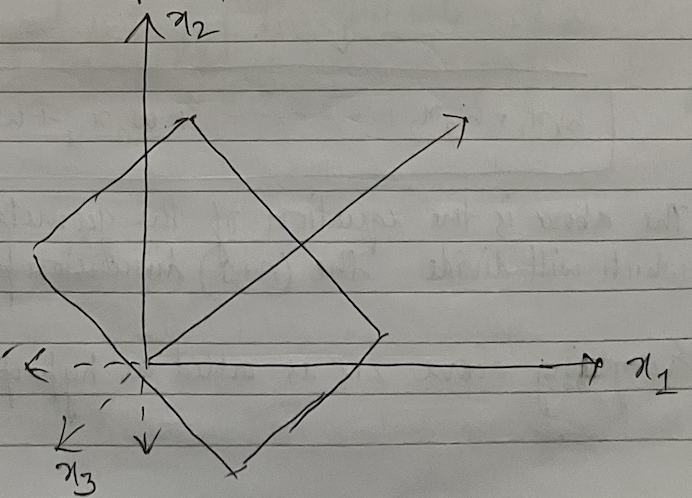 x₂
x₁
x₃